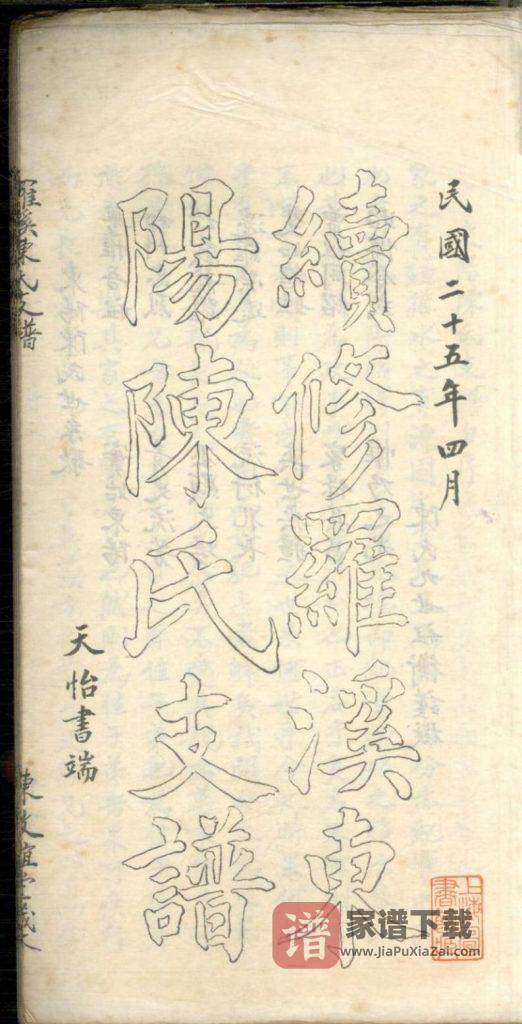 民國二十五年四月
續修羅溪東
陽陳氏支譜
天怡書端
羅溪陳氏支譜
谱
家谱下载
www.JiaPuXiaZai.com